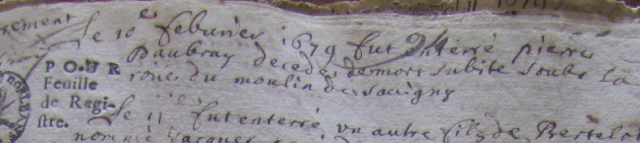 rement
le 10e feburier 1679 fut enterré pierre
Daubray decedé de mort subite soubs la
roue du moulin de sauigny
POUR
Feuille
de Regi-
stre.
le 11 fut enterré vn autre filz de Bertelot
nommé Jacques